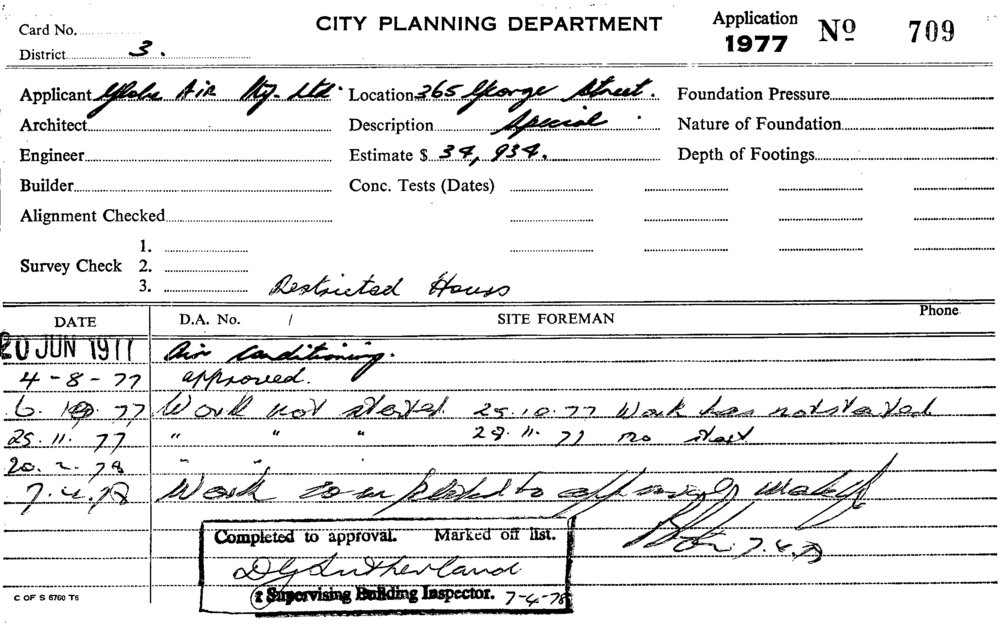 Card No.
CITY PLANNING DEPARTMENT
Application 1977 Nº 709
District 3.
Applicant Globe Air Pty. Ltd. Location 365 George Street. Foundation Pressure
Architect Description Special Nature of Foundation
Engineer Estimate $ 34,934. Depth of Footings
Builder Conc. Tests (Dates)
Alignment Checked
Survey Check 1.
2.
3. Restricted Hours
DATE D.A. No. / SITE FOREMAN Phone
20 JUN 1977 Air Conditioning.
4-8-77 approved.
6. 10. 77 Work not started. 25.10.77 Work has not started
25.11.77 " " " 28.11.77 no start
20.2.78 " " "
7.4.78 Work completed to approval
7.4.78
Completed to approval. Marked off list.
D G Sutherland
Supervising Building Inspector. 7-4-78
C OF S 6760 T6